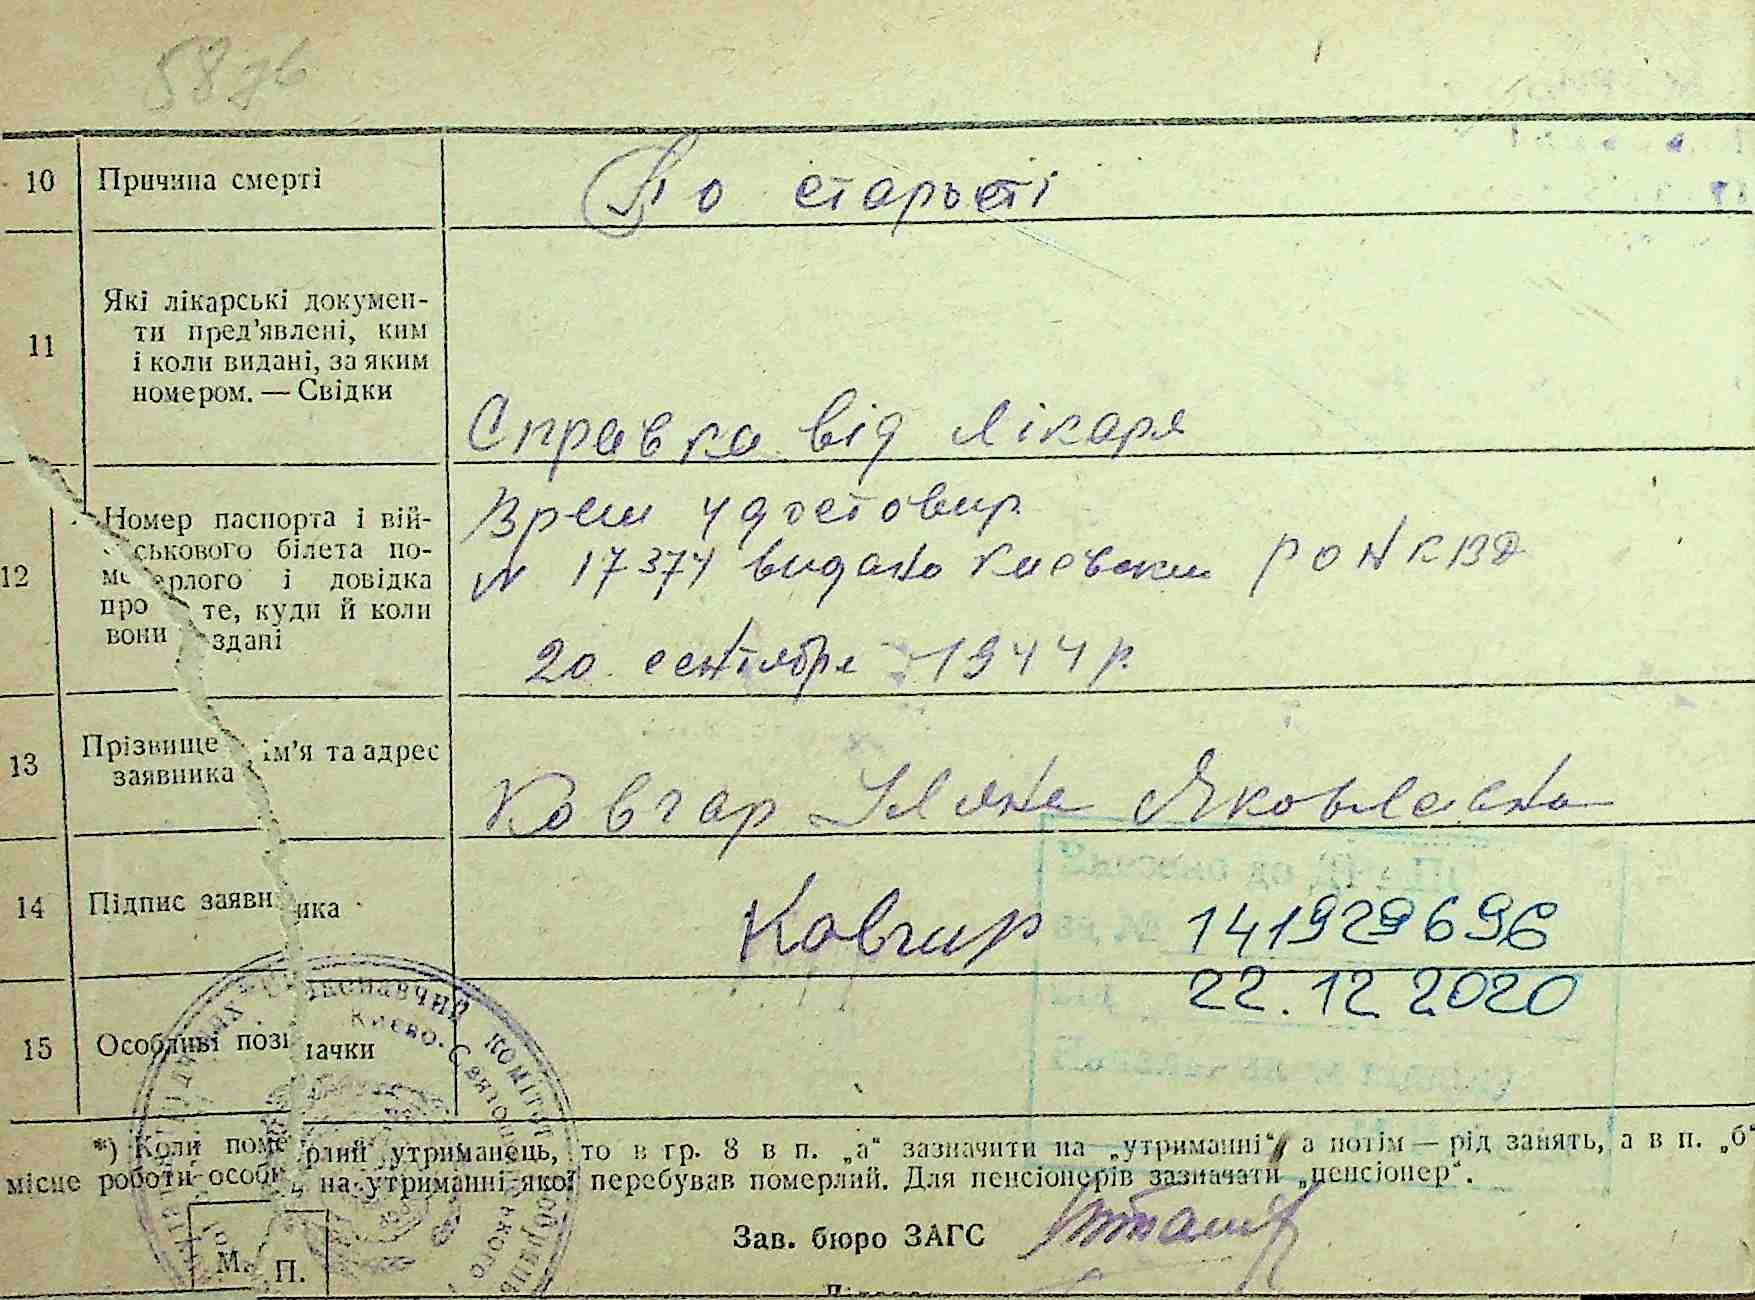 58
10 Причина смерті По старьсті
11 Які лікарські докумен-
ти пред'явлені, ким
і коли видані, за яким
номером. — Свідки
Справка від лікаря
12 Номер паспорта і вій-
ськового білета по-
мерлого і довідка
про те, куди й коли
вони здані
Врем удостовир
N 17374 видано Киевским РО НКВД
20 сентября 1944 р.
13 Прізвище ім'я та адрес
заявника
Ковгар Уляна Яковлевна
14 Підпис заявника Ковгар
Внесено до
141929696
22.12.2020
15 Особливі позначки
*) Коли померлий утриманець, то в гр. 8 в п. „а“ зазначити на „утриманні“, а потім — рід занять, а в п. „б“
місце роботи особи, на утриманні якої перебував померлий. Для пенсіонерів зазначати „пенсіонер“.
Виконавчий комітет
Києво-Святошинського
Зав. бюро ЗАГС
М. П.